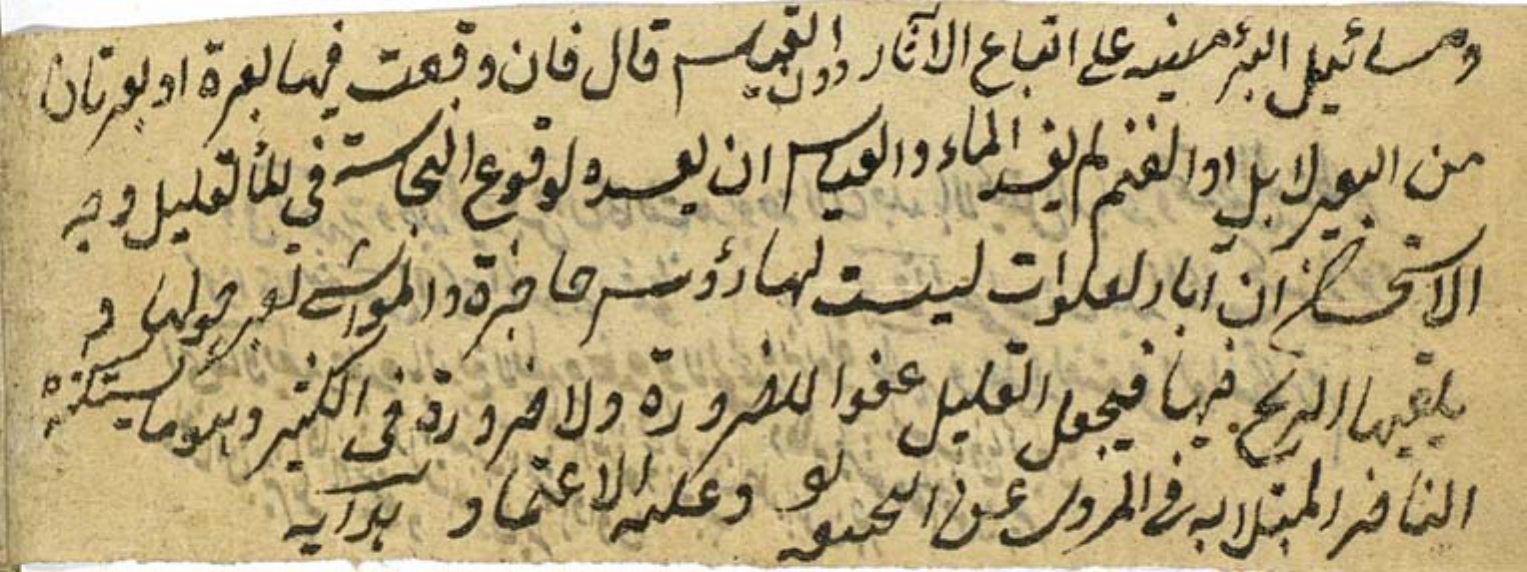 ومسائيل البئر مبنيه على اتباع الآثار دون القياس قال فان وقعت فيها بعرة او بعرتان
من البعير لابل او الغنم لم يفسد الماء والقياس ان يفسده لوقوع النجاسة في الماء القليل وجه
الاستحسان ان آبار الفلوات ليست لها رؤوس حاجزة والمواشي تبعر حولها و
يلقيها الريح فيها فيجعل القليل عفوا للضرورة ولا ضرورة في الكثير وهو ما يستكثره
الناظر المبتلا به في المروى عن ابى حنيفه وعليه الاعتماد هدايه